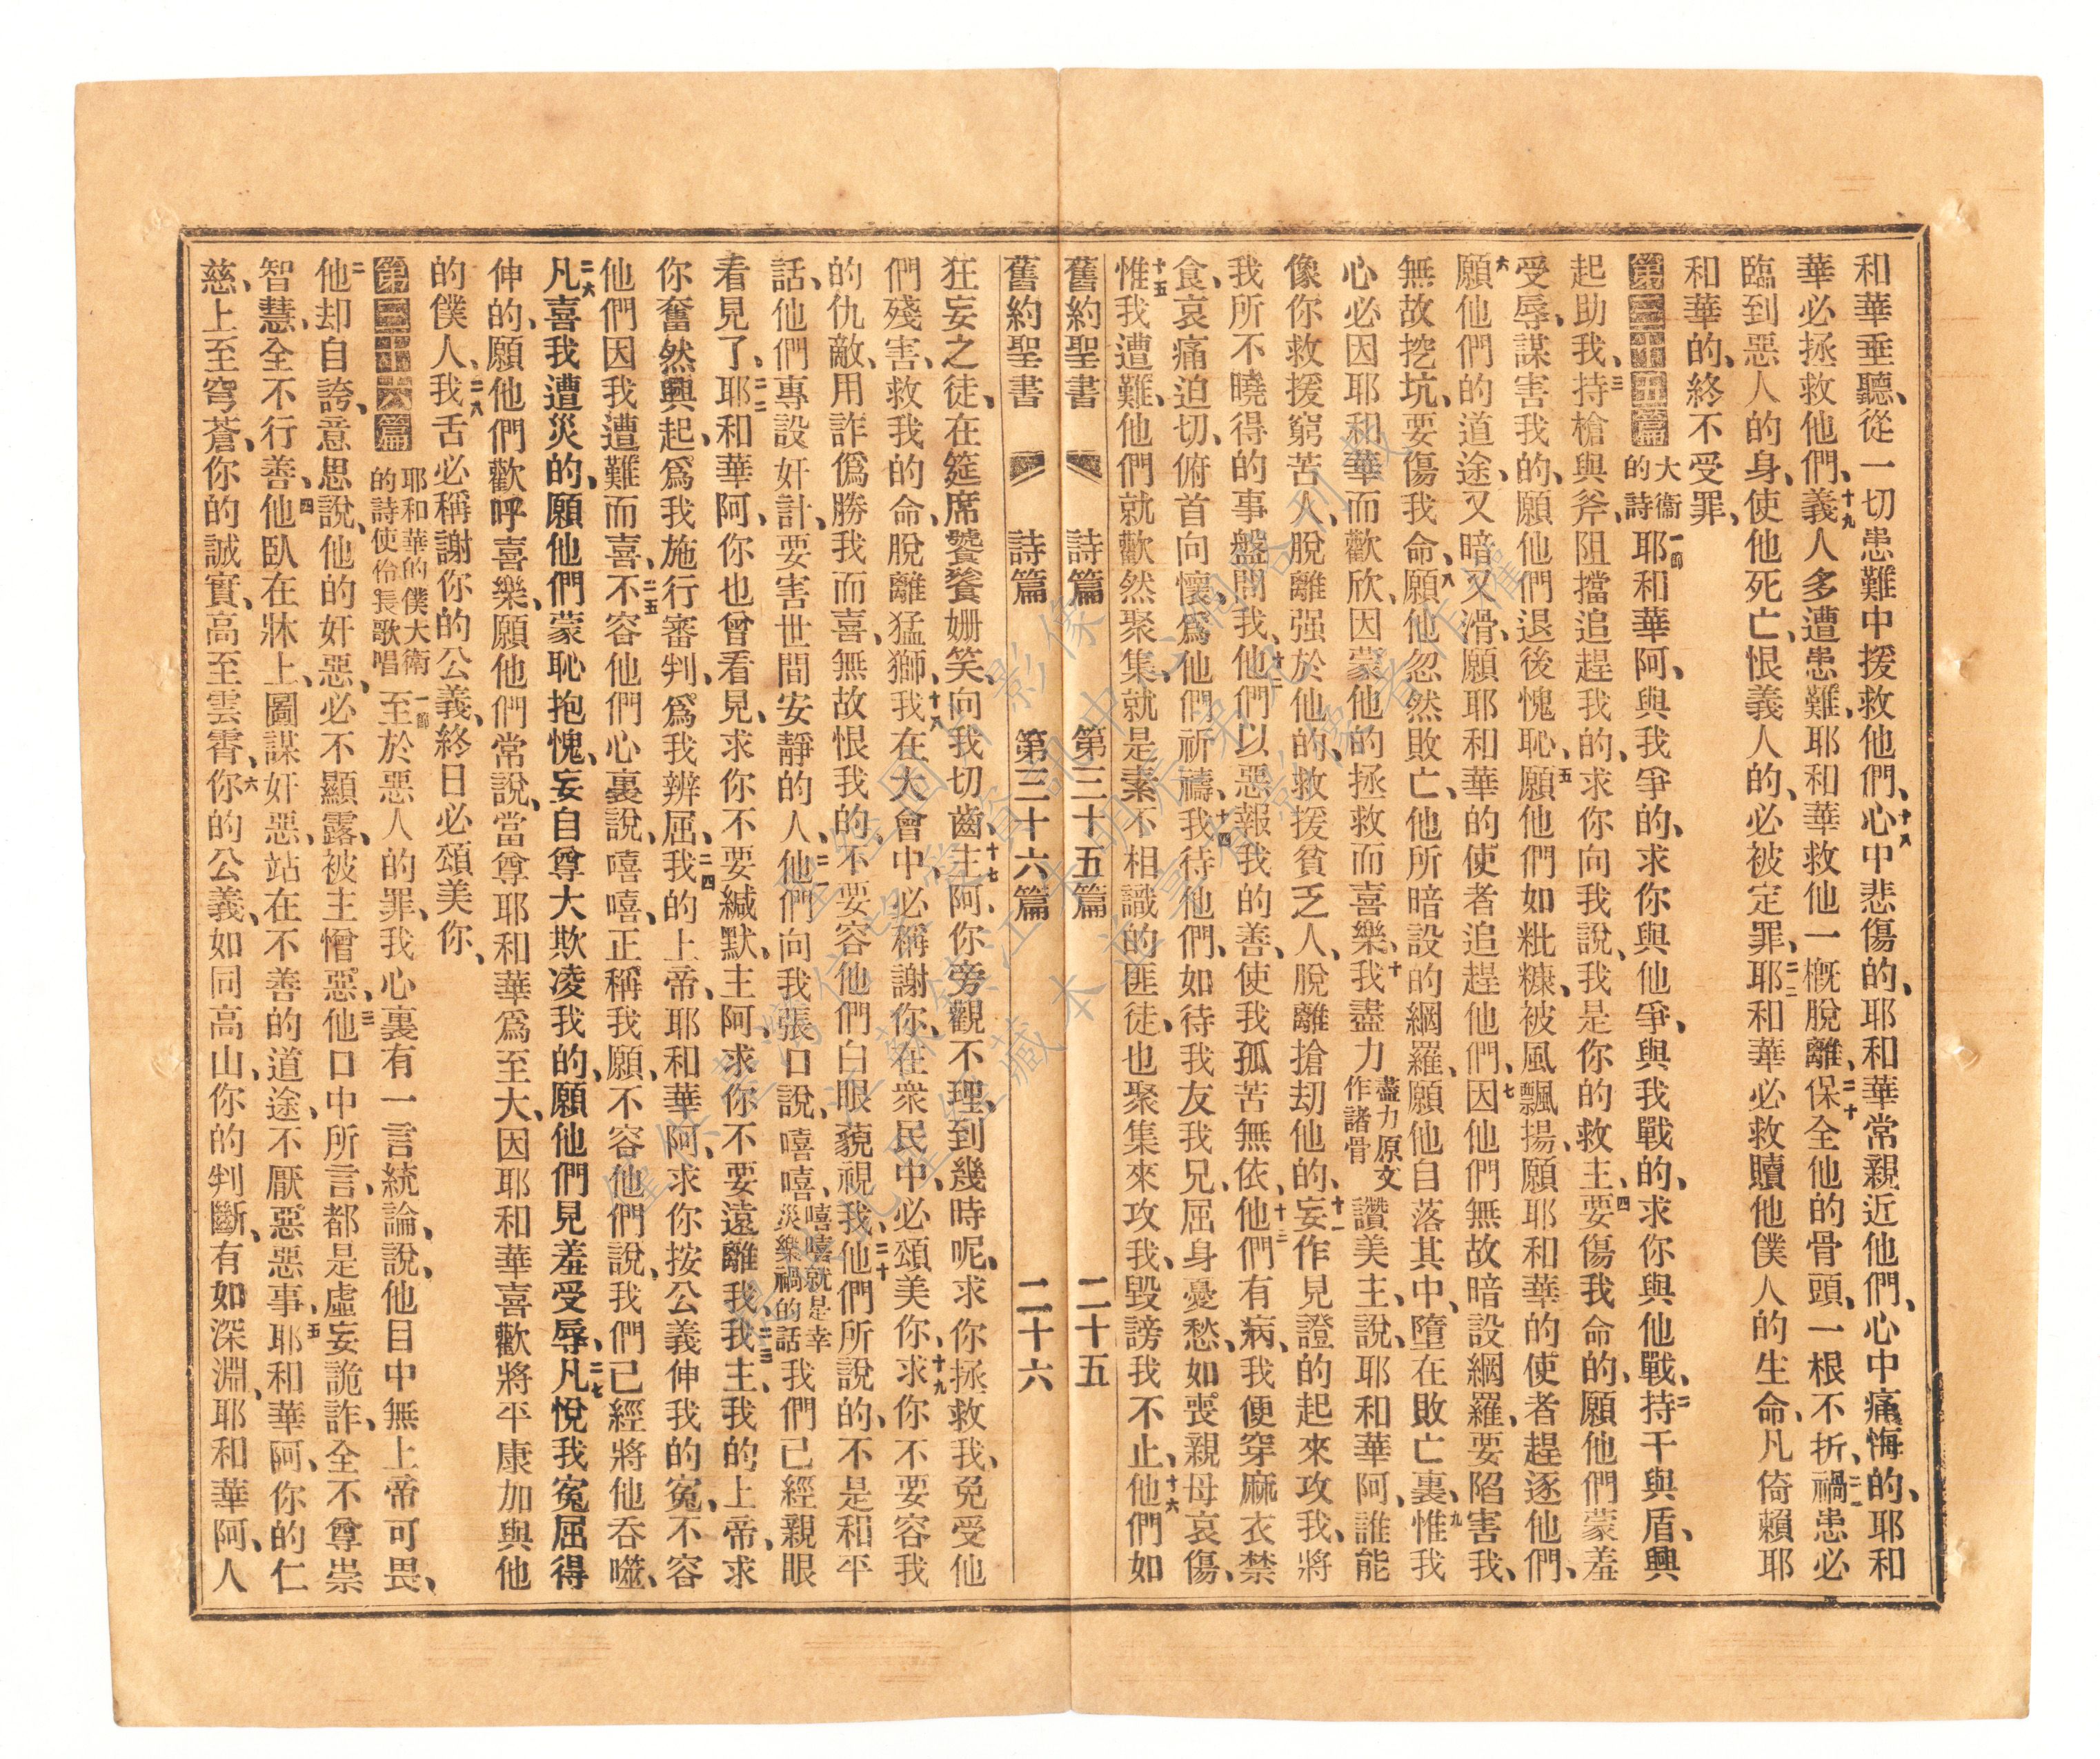 和華垂聽、從一切患難中援救他們、十八心中悲傷的、耶和華常親近他們、心中痛悔的、耶和
華必拯救他們、十九義人多遭患難、耶和華救他一概脫離、二十保全他的骨頭、一根不折、二一禍患必
臨到惡人的身、使他死亡、恨義人的、必被定罪、二二耶和華必救贖他僕人的生命、凡倚賴耶
和華的、終不受罪、
第三十五篇 大衞的詩 一節耶和華阿、與我爭的、求你與他爭、與我戰的、求你與他戰、二持干與盾、興
起助我、三持槍與斧、阻擋追趕我的、求你向我說、我是你的救主、四要傷我命的、願他們蒙羞
受辱、謀害我的、願他們退後愧恥、五願他們如粃糠、被風飄揚、願耶和華的使者趕逐他們、
六願他們的道途、又暗又滑、願耶和華的使者追趕他們、七因他們無故暗設網羅、要陷害我、
無故挖坑、要傷我命、八願他忽然敗亡、他所暗設的網羅、願他自落其中、墮在敗亡裏、九惟我
心必因耶和華而歡欣、因蒙他的拯救而喜樂、十我盡力盡力原文作諸骨讚美主、說、耶和華阿、誰能
像你救援窮苦人、脫離强於他的、救援貧乏人、脫離搶刧他的、十一妄作見證的起來攻我、將
我所不曉得的事盤問我、十二他們以惡報我的善、使我孤苦無依、十三他們有病、我便穿麻衣禁
食、哀痛迫切、俯首向懷、爲他們祈禱、十四我待他們、如待我友我兄、屈身憂愁、如喪親母哀傷、
十五惟我遭難、他們就歡然聚集、就是素不相識的匪徒、也聚集來攻我、毀謗我不止、十六他們如
舊約聖書 詩篇 第三十五篇 二十五
舊約聖書 詩篇 第三十六篇 二十六
狂妄之徒、在筵席饕餮姍笑、向我切齒、十七主阿、你旁觀不理、到幾時呢、求你拯救我、免受他
們殘害、救我的命、脫離猛獅、十八我在大會中、必稱謝你、在衆民中、必頌美你、十九求你不要容我
的仇敵、用詐僞勝我而喜、無故恨我的、不要容他們白眼藐視我、二十他們所說的、不是和平
話、他們專設奸計、要害世間安靜的人、二一他們向我張口說、嘻嘻、嘻嘻就是幸災樂禍的話我們已經親眼
看見了、二二耶和華阿、你也曾看見、求你不要緘默、主阿、求你不要遠離我、二三我主、我的上帝、求
你奮然興起、爲我施行審判、爲我辨屈、二四我的上帝、耶和華阿、求你按公義伸我的寃、不容
他們因我遭難而喜、二五不容他們心裏說、嘻嘻、正稱我願、不容他們說、我們已經將他吞噬、
二六凡喜我遭災的、願他們蒙恥抱愧、妄自尊大欺凌我的、願他們見羞受辱、二七凡悅我寃屈得
伸的、願他們歡呼喜樂、願他們常說、當尊耶和華爲至大、因耶和華喜歡將平康加與他
的僕人、二八我舌必稱謝你的公義、終日必頌美你、
第三十六篇 耶和華的僕大衛的詩使伶長歌唱 一節至於惡人的罪、我心裏有一言統論、說、他目中無上帝可畏、
二他却自誇、意思說、他的奸惡、必不顯露、被主憎惡、三他口中所言、都是虛妄詭詐、全不尊崇
智慧、全不行善、四他臥在牀上、圖謀奸惡、站在不善的道途、不厭惡惡事、五耶和華阿、你的仁
慈、上至穹蒼、你的誠實、高至雲霄、六你的公義、如同高山、你的判斷、有如深淵、耶和華阿、人